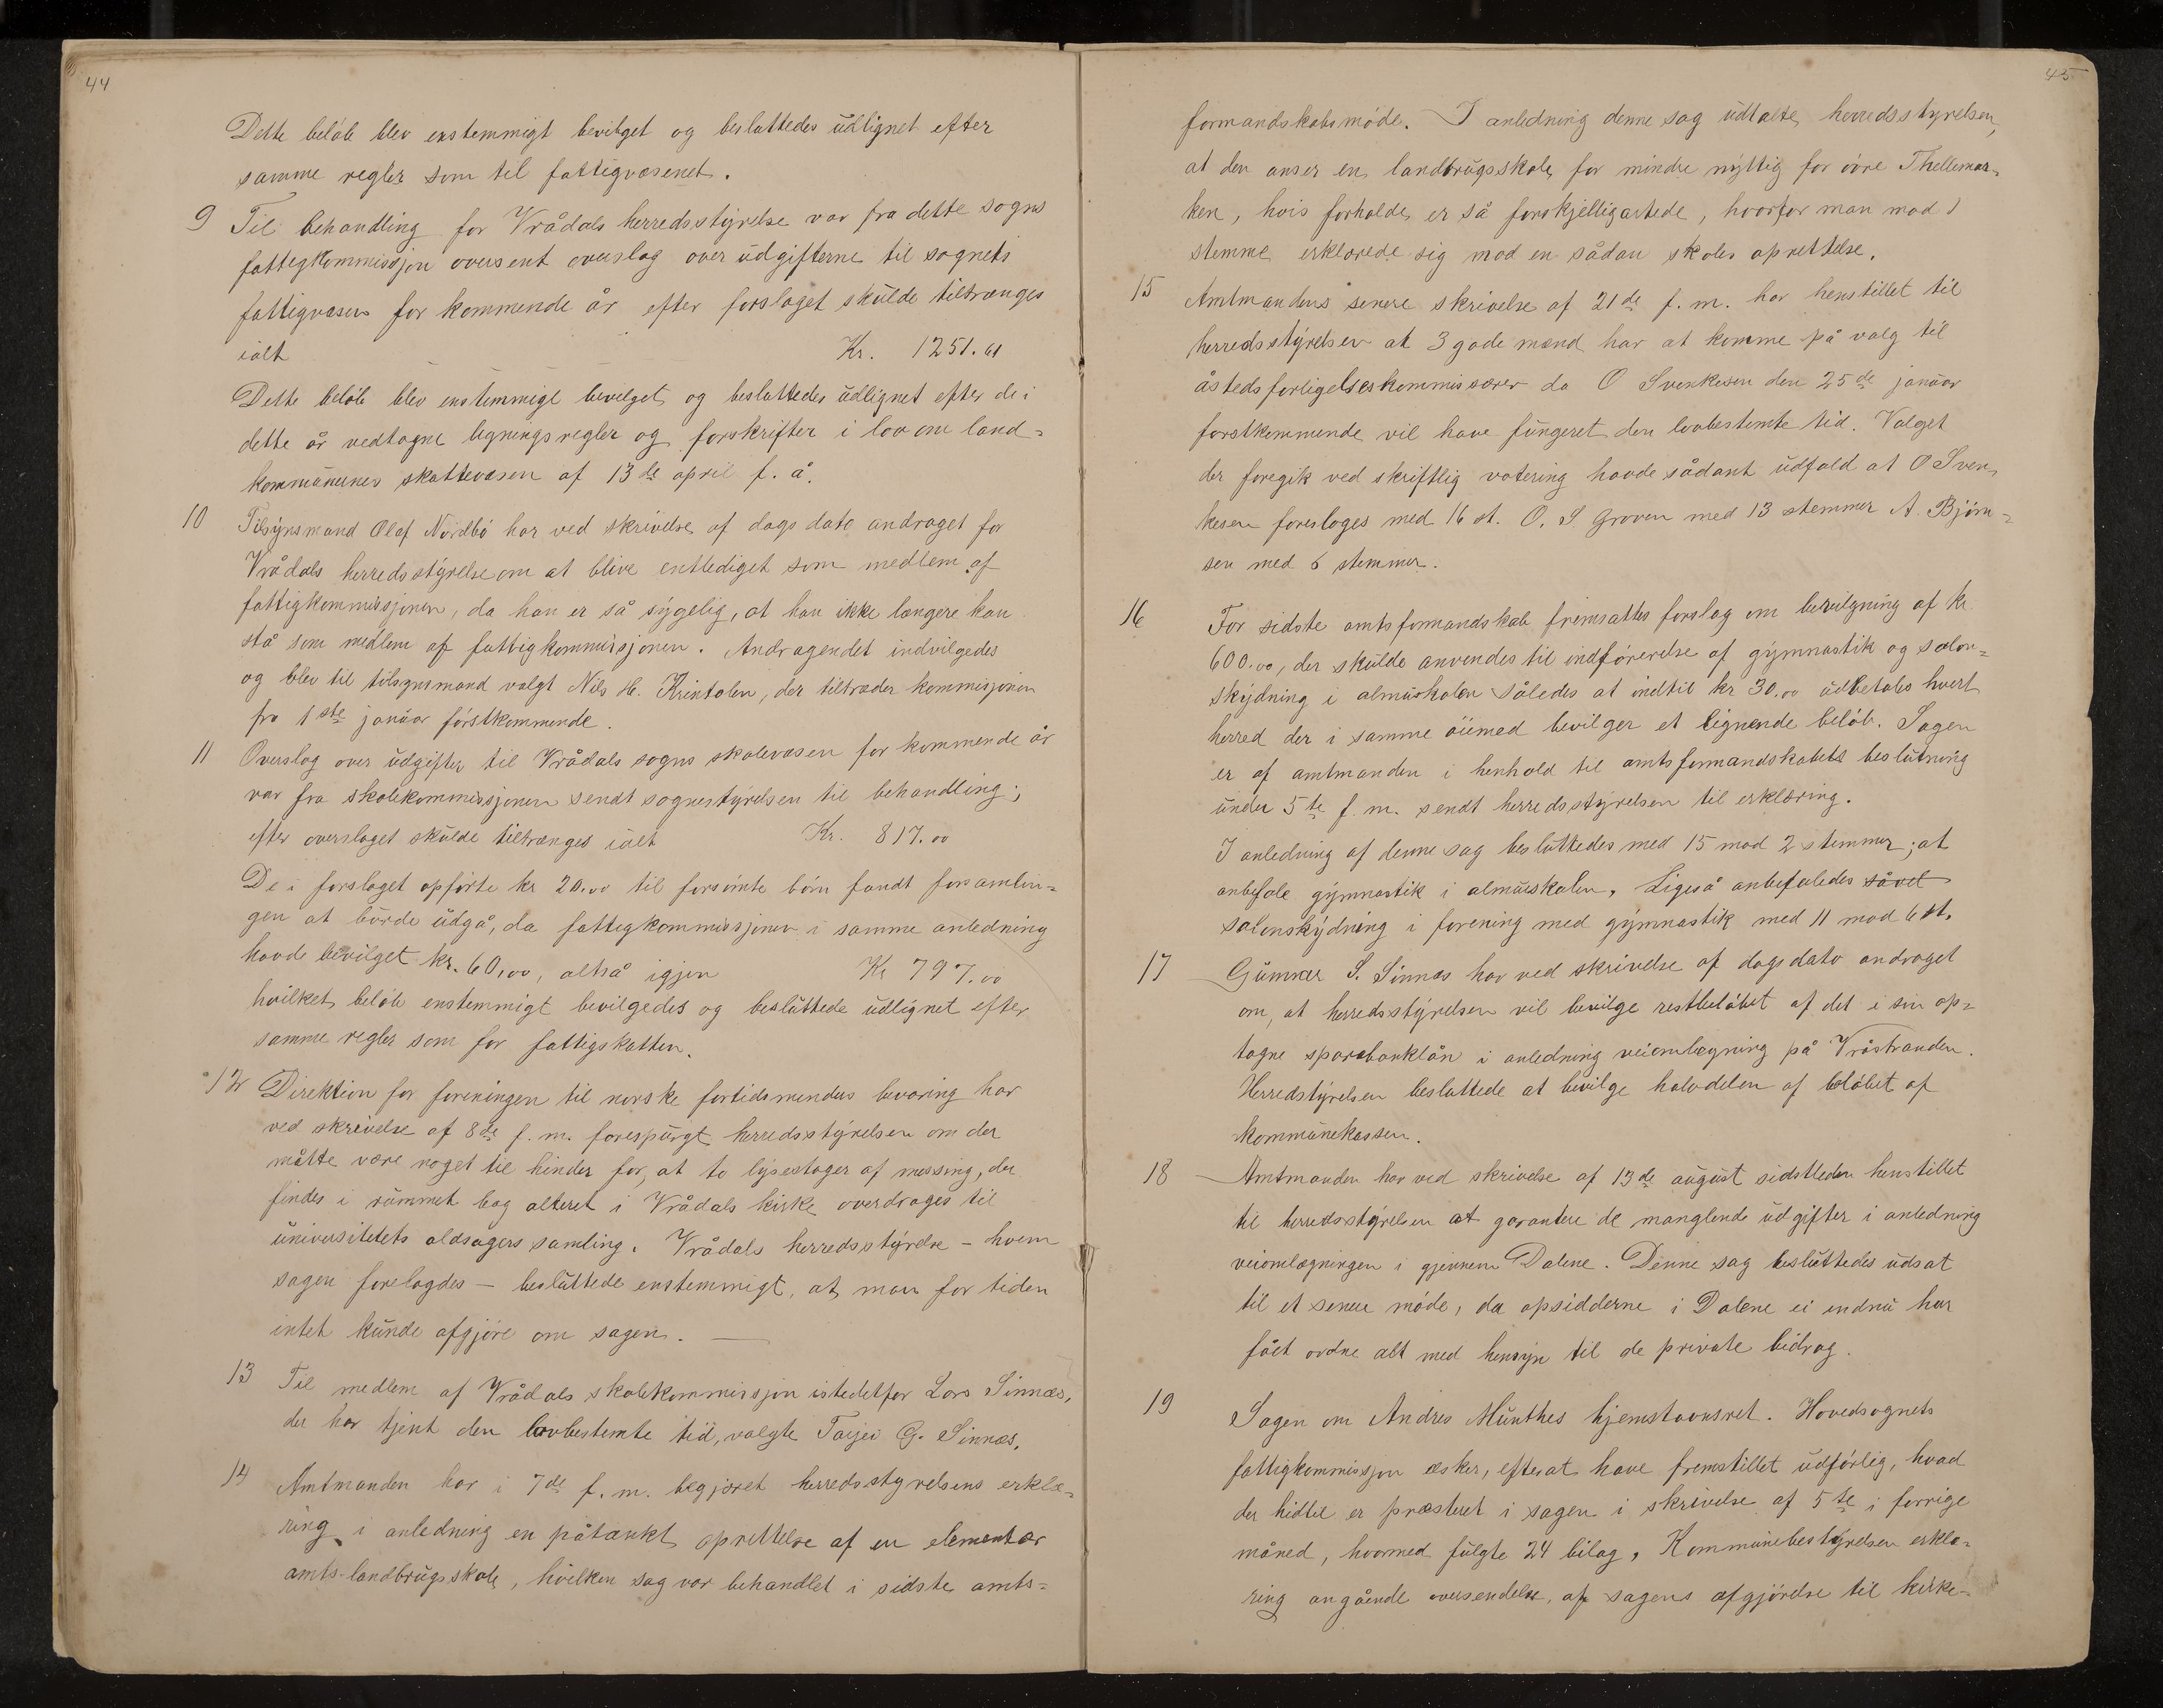 44
Dette beløb blev enstemmigt bevilget og besluttedes udlignet efter
samme regler som til fattigvæsenet.
9 Til behandling for Vrådals herredsstyrelse var fra dette sogns
fattigkommissjon oversent overslag over udgifterne til sognets
fattigvæsen for kommende år efter forslaget skulde tiltrænges
ialt Kr. 1251.61
Dette beløb blev enstemmigt bevilget og besluttedes udlignet efter de i
dette år vedtagne ligningsregler og forskrifter i lov om land-
kommuners skattevæsen af 13de april f. å.
10 Tilsynsmand Olaf Nordbø har ved skrivelse af dags dato andraget for
Vrådals herredsstyrelse om at blive entlediget som medlem af
fattigkommissjonen, da han er så sygelig, at han ikke længere kan
stå som medlem af fattigkommissjonen. Andragendet indvilgedes
og blev til tilsynsmand valgt Nils H. Krintolen, der tiltræder kommisjonen
fra 1ste januar førstkommende.
11 Overslag over udgifter til Vrådals sogns skolevæsen for kommende år
var fra skolekommissjonen sendt sognestyrelsen til behandling;
efter overslaget skulde tiltrænges ialt Kr. 817.00
De i forslaget opførte kr 20.00 til forsømte børn fandt forsamlin-
gen at burde udgå, da fattigkommissjonen i samme anledning
havde bevilget kr. 60,00, altså igjen Kr 797.00
hvilket beløb enstemmigt bevilgedes og besluttede udlignet efter
samme regler som for fattigskatten.
12 Direktion for foreningen til norske fortidsmendus bevaring har
ved skrivelse af 8de f. m. forespurgt herredsstyrelsen om der
måtte være noget til hinder for, at to lysestager af messing, der
findes i rummet bag alteret i Vrådals kirke overdrages til
universitetets oldsagers samling. Vrådals herredsstyrelse – hvem
sagen forelagdes – besluttede enstemmigt, at man for tiden
intet kunde afgjøre om sagen. —
13 Til medlem af Vrådals skolekommissjon istedetfor Lars Sinnæs,
der har tjent den lovbestemte tid, valgte Taijei G. Sinnæs.
14 Amtmanden har i 7de f. m. begjæret herredsstyrelsens erklæ-
ring i anledning en påtænkt oprettelse af en elementær
amts-landbrugsskole, hvilken sag var behandlet i sidste amts-
45
formandskabsmøde. I anledning denne sag udtalte herredsstyrelsen,
at den anser en landbrugsskole for mindre nyttig for øvre Thellemar-
ken, hvis forholde er så forskjelligartede, hvorfor man mod 1
stemme erklærede sig mod en sådan skoles oprettelse.
15 Amtmandens senere skrivelse af 21de f. m. har henstillet til
herredsstyrelsen at 3 gode mænd har at komme på valg til
åstedsforligelseskommissærer da O Svenkesen den 25de januar
førstkommende vil have fungeret den lovbestemte tid. Valget
der foregik ved skriftlig votering havde sådant udfald at O Sven-
kesen foresloges med 16 st. O. S. Groven med 13 stemmer A. Bjørn-
sen med 6 stemmer.
16 For sidste amtsformandskab fremsattes forslag om bevilgning af kr.
600.00, der skulde anvendes til indførerelse af gymnastik og salon-
skydning i almuskolen således at indtil kr 30.00 udbetales hvert
herred der i samme øiemed bevilger et lignende beløb. Sagen
er af amtmanden i henhold til amtsformandskabets beslutning
under 5te f. m. sendt herredsstyrelsen til erklæring.
I anledning af denne sag besluttedes med 15 mod 2 stemmer; at
anbefale gymnastik i almueskolen. Ligeså anbefaledes såvel
salonskydning i forening med gymnastik med 11 mod 6 st.
17 Gunnar S. Sinnæs har ved skrivelse af dags dato andraget
om, at herredsstyrelsen vil bevilge restbeløbet af det i sin op-
tagne sparebanklån i anledning veiomlægning på Vråstranden.
Herredstyrelsen besluttede at bevilge halvdelen af beløbet af
kommunekassen.
18 Amtmanden har ved skrivelse af 13de august sidstleden henstillet
til herredsstyrelsen at garantere de manglende udgifter i anledning
veiomlægningen i gjennem Dalene. Denne sag besluttedes udsat
til et senere møde, da opsidderne i Dalene ei endnu har
fået ordne alt med hensyn til de private bidrag.
19 Sagen om Andres Munthes hjemstavnsret. Hovedsognets
fattigkommissjon æsker, efterat have fremstillet udførlig, hvad
der hidtil er præsteret i sagen i skrivelse af 5te i forrige
måned, hvormed fulgte 24 bilag, Kommunebestyrelsen erklæ-
ring angående oversendelse af sagens afgjørelse til kirke-